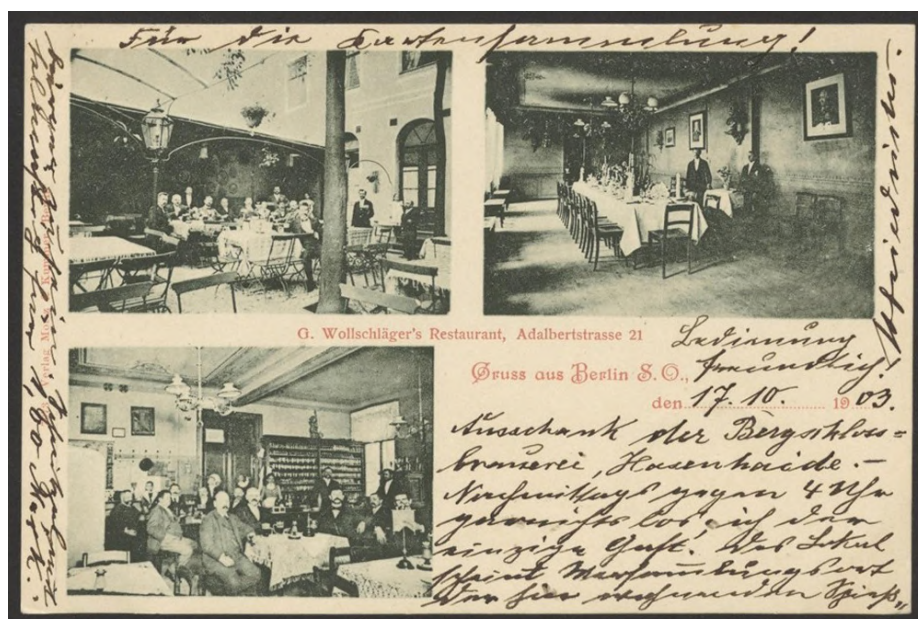 Für die Kartensammlung!
G. Wollschläger's Restaurant, Adalbertstrasse 21
Bedienung
freundlich!
Gruss aus Berlin S. O.,
den 17. 10. 1903.
Ausschank der Bergschloss=
brauerei, Hasenheide. –
Nachmittags gegen 4 Uhr
garnichts los, ich der
einzige Gast. Das Lokal
scheint Versammlungsort
der hier wohnenden Spieß„
Verlag
1,60 Mark.